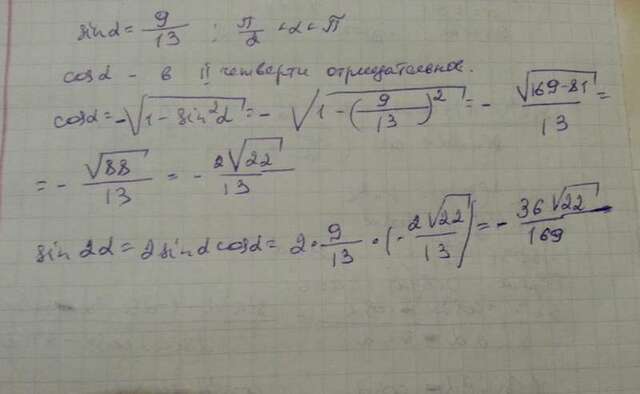 sinα = 9/13 ; π/2 < α < π
cosα - в II четверти отрицательное.
cosα = -√(1 - sin²α) = - √(1 - (9/13)²) = - √(169-81)/13 =
= - √88/13 = - 2√22/13
sin 2α = 2 sinα cosα = 2 · 9/13 · (- 2√22/13) = - 36√22/169